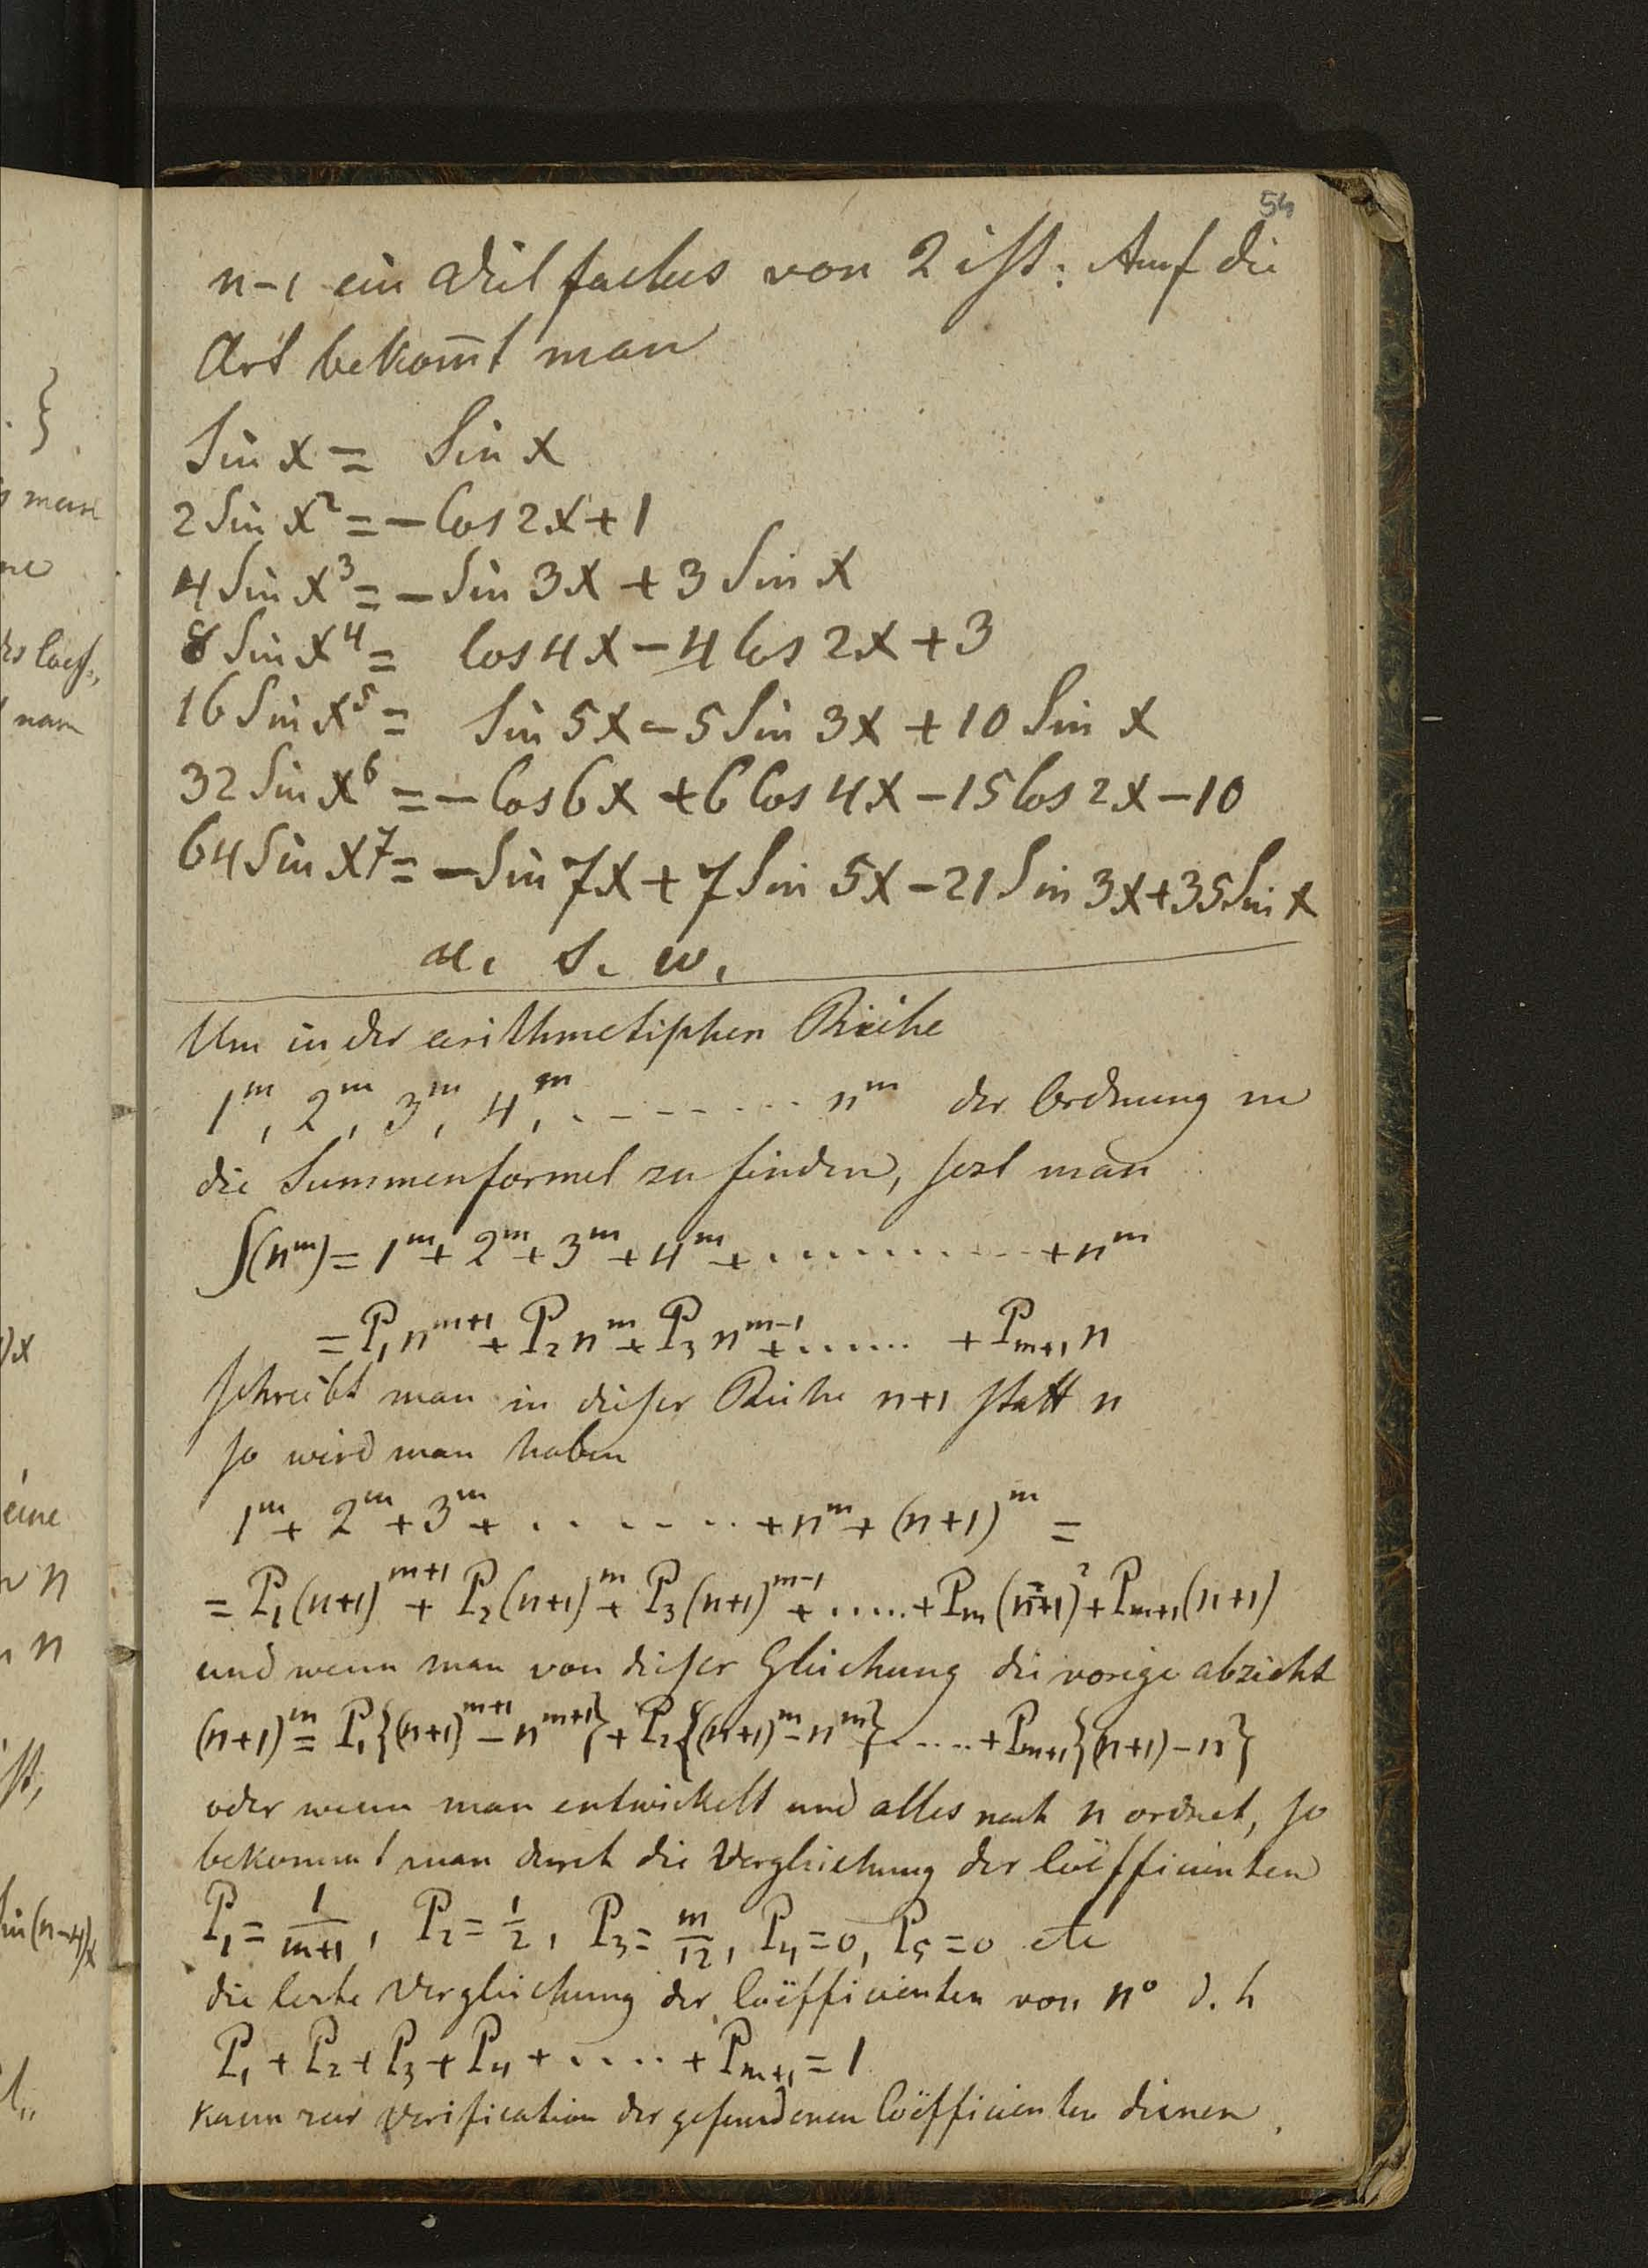 54
n-1 ein Vielfaches von 2 ist: Auf die
Art bekom̅t man
Sin x = Sin x
2 Sin x² = - Cos 2x + 1
4 Sin x³ = - Sin 3x + 3 Sin x
8 Sin x⁴ = Cos 4x - 4 Cos 2x + 3
16 Sin x⁵ = Sin 5x - 5 Sin 3x + 10 Sin x
32 Sin x⁶ = - Cos 6x + 6 Cos 4x - 15 Cos 2x - 10
64 Sin x⁷ = - Sin 7x + 7 Sin 5x - 21 Sin 3x + 35 Sin x
u. s. w.
Um in der arithmetischen Reihe
1^m, 2^m, 3^m, 4^m, ......... n^m der Ordnung m
die Summenformel zu finden, sezt man
∫(n^m) = 1^m + 2^m + 3^m + 4^m + .......... + n^m
= P₁ n^{m+1} + P₂ n^m + P₃ n^{m-1} + ...... + P_{m+1} n
schreibt man in dieser Reihe n+1 statt n
so wird man haben
1^m + 2^m + 3^m + ........ + n^m + (n+1)^m =
= P₁(n+1)^{m+1} + P₂(n+1)^m + P₃(n+1)^{m-1} + ..... + P_m(n+1)² + P_{m+1}(n+1)
und wenn man von dieser Gleichung die vorige abzieht
(n+1)^m = P₁{(n+1)^{m+1} - n^{m+1}} + P₂{(n+1)^m - n^m} ..... + P_{m+1}{(n+1) - n}
oder wenn man entwickelt und alles nach n ordnet, so
bekommt man durch die Vergleichung der Coëfficienten
P₁ = 1/(m+1), P₂ = 1/2, P₃ = m/12, P₄ = 0, P₅ = 0 etc
die lezte Vergleichung der Coëfficienten von n⁰ d. h
P₁ + P₂ + P₃ + P₄ + ..... + P_{m+1} = 1
kann zur Verification der gefundenen Coëfficienten dienen.